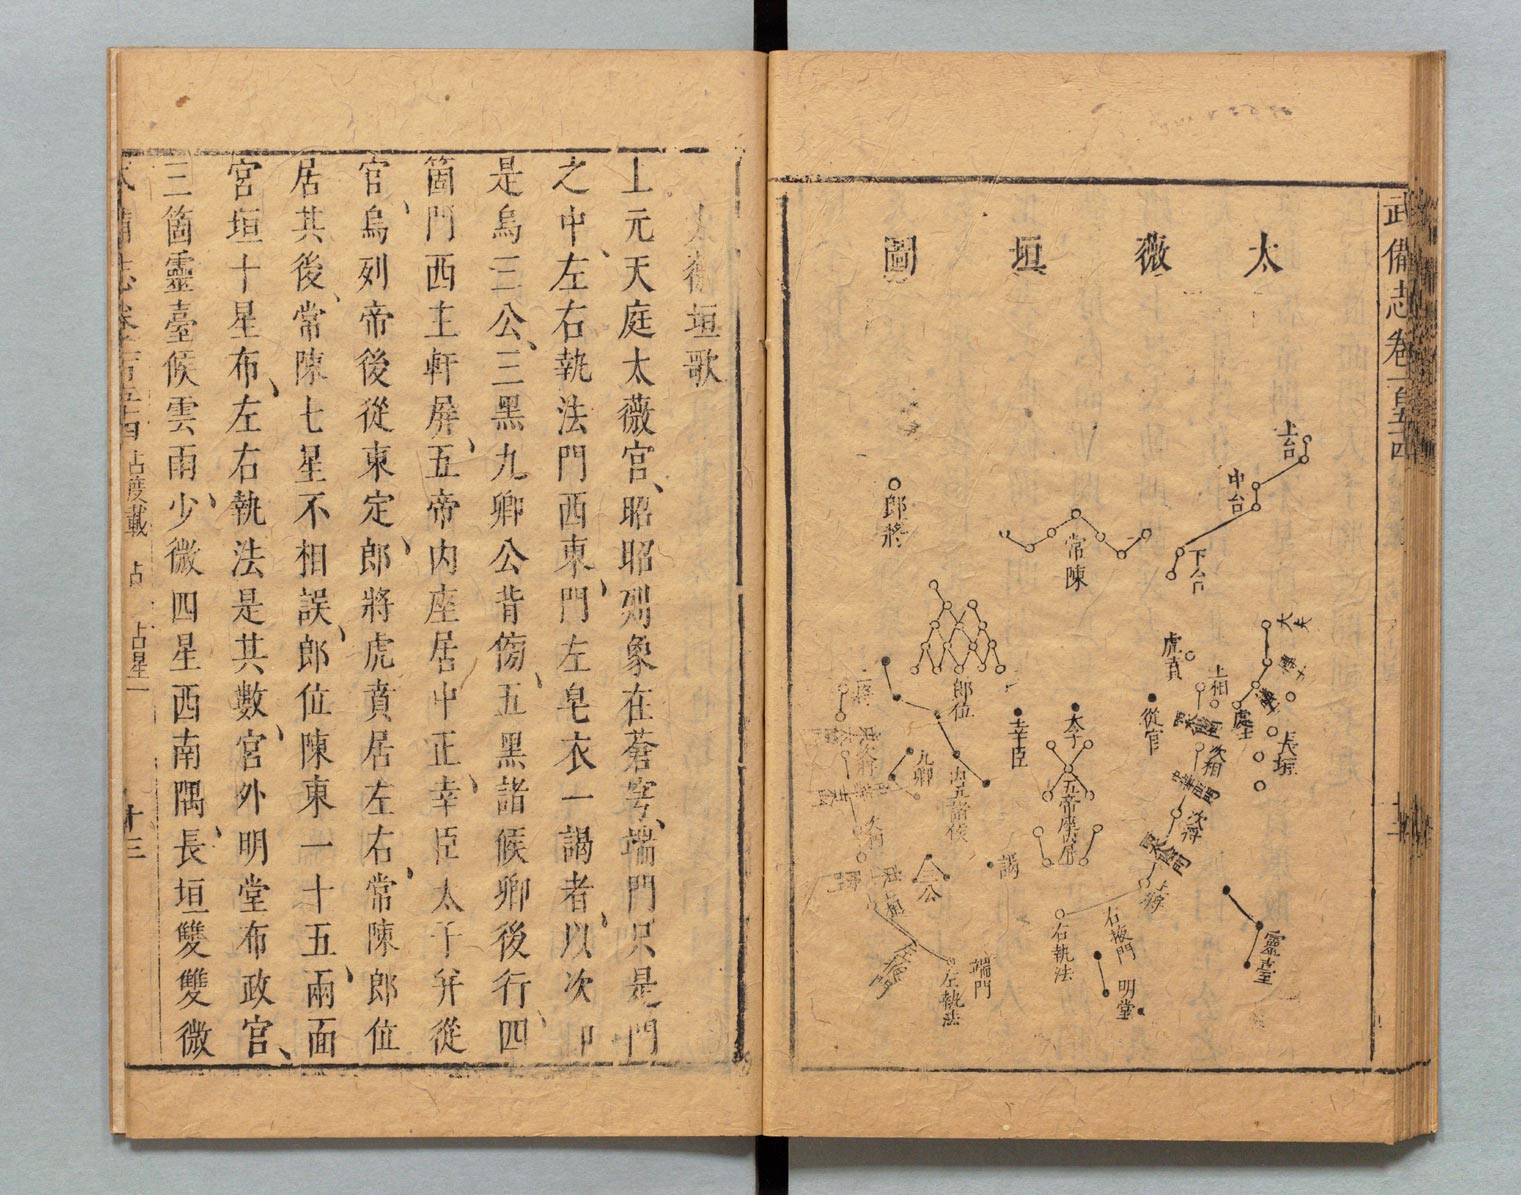 武備志卷一百五十四
太薇垣圖
上台
中台
下台
常陳
郎將
大夫
虎賁
上相
處士
長垣
從官
太子
幸臣
郎位
九卿
內五諸侯
五帝座
屏
次相
次將
上將
謁
三公
右執法
右掖門
明堂
靈臺
端門
左執法
左掖門
太薇垣歌
上元天庭太薇宮、昭昭列象在蒼穹、端門只是門
之中、左右執法門西東、門左皂衣一謁者、以次卽
是烏三公、三黑九卿公背傍、五黑諸候卿後行、四
箇門西主軒屏、五帝內座居中正、幸臣太子幷從
官、烏列帝後從東定、郎將虎賁居左右、常陳郎位
居其後、常陳七星不相誤、郎位陳東一十五、兩面
宮垣十星布、左右執法是其數、宮外明堂布政宮、
三箇靈臺候雲雨、少微四星西南隅、長垣雙雙微
占度載 占 占星一
十三